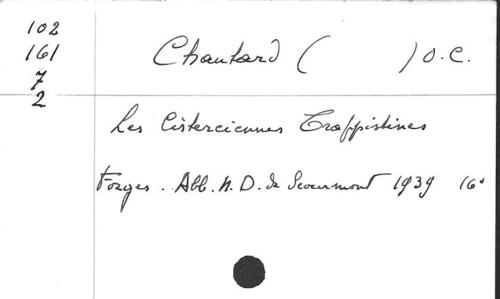 102
161
7
2
Chautard ( ) O.C.
Les Cisterciennes Trappistines
Forges. Abb. N. D. de Scourmont 1939 16°